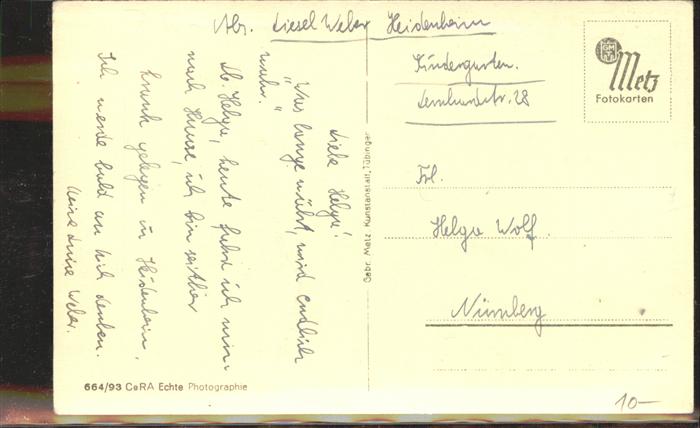 Abs. Liesel Weber Heidenheim
Kindergarten.
28
Metz
Fotokarten
Liebe Helga!
"Was lange währt, wird endlich
wahr."
Lb. Helga, heute fahre ich nun
nach Hause, ich bin seither
krank gelegen in Heidenheim.
Ich werde bald an dich denken.
Deine Weber.
Gebr. Metz Kunstanstalt, Tübingen
Frl.
Helga Wolf.
Nürnberg
664/93 CeRA Echte Photographie
10—